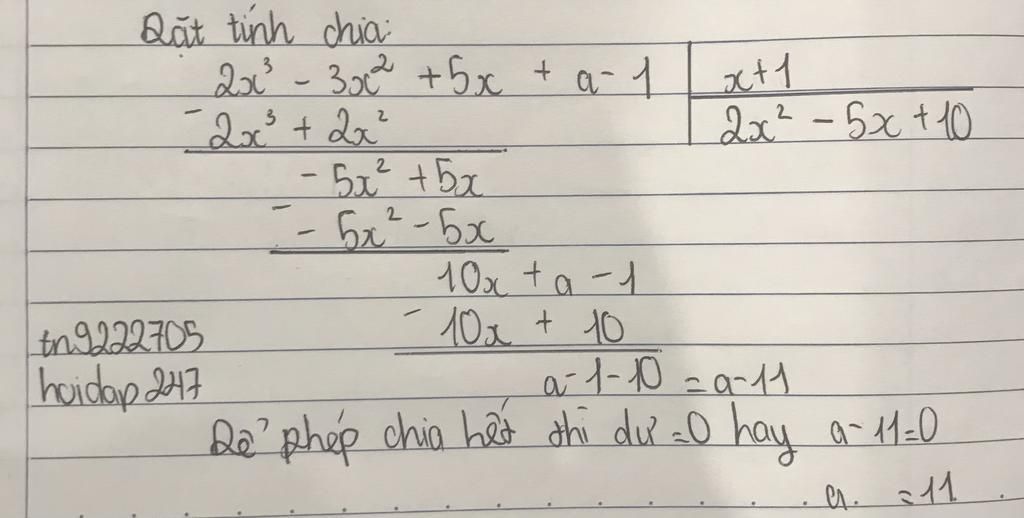 Đặt tính chia:
2x³ - 3x² + 5x + a - 1 | x + 1
- 2x³ + 2x² | 2x² - 5x + 10
- 5x² + 5x
- - 5x² - 5x
10x + a - 1
- 10x + 10
tn9222705
a - 1 - 10 = a - 11
hoidap247
Để phép chia hết thì dư = 0 hay a - 11 = 0
a = 11